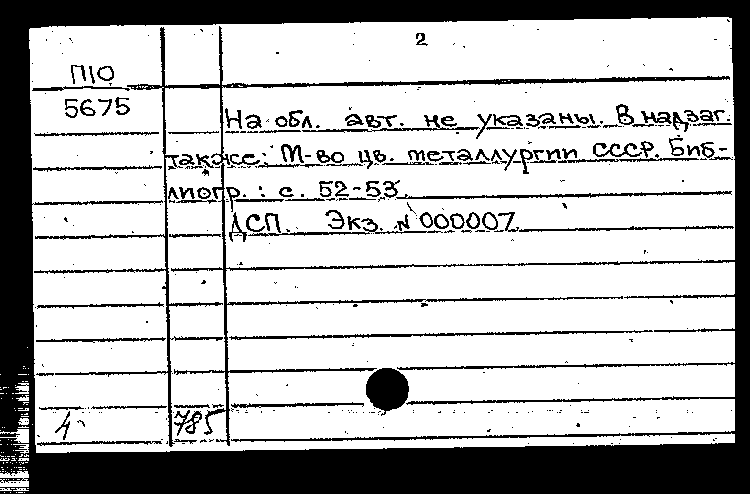 2
П10
5675
На обл. авт. не указаны. В надзаг.
также: М-во цв. металлургии СССР. Биб-
лиогр.: с. 52-53.
ДСП. Экз. № 000007
4
785